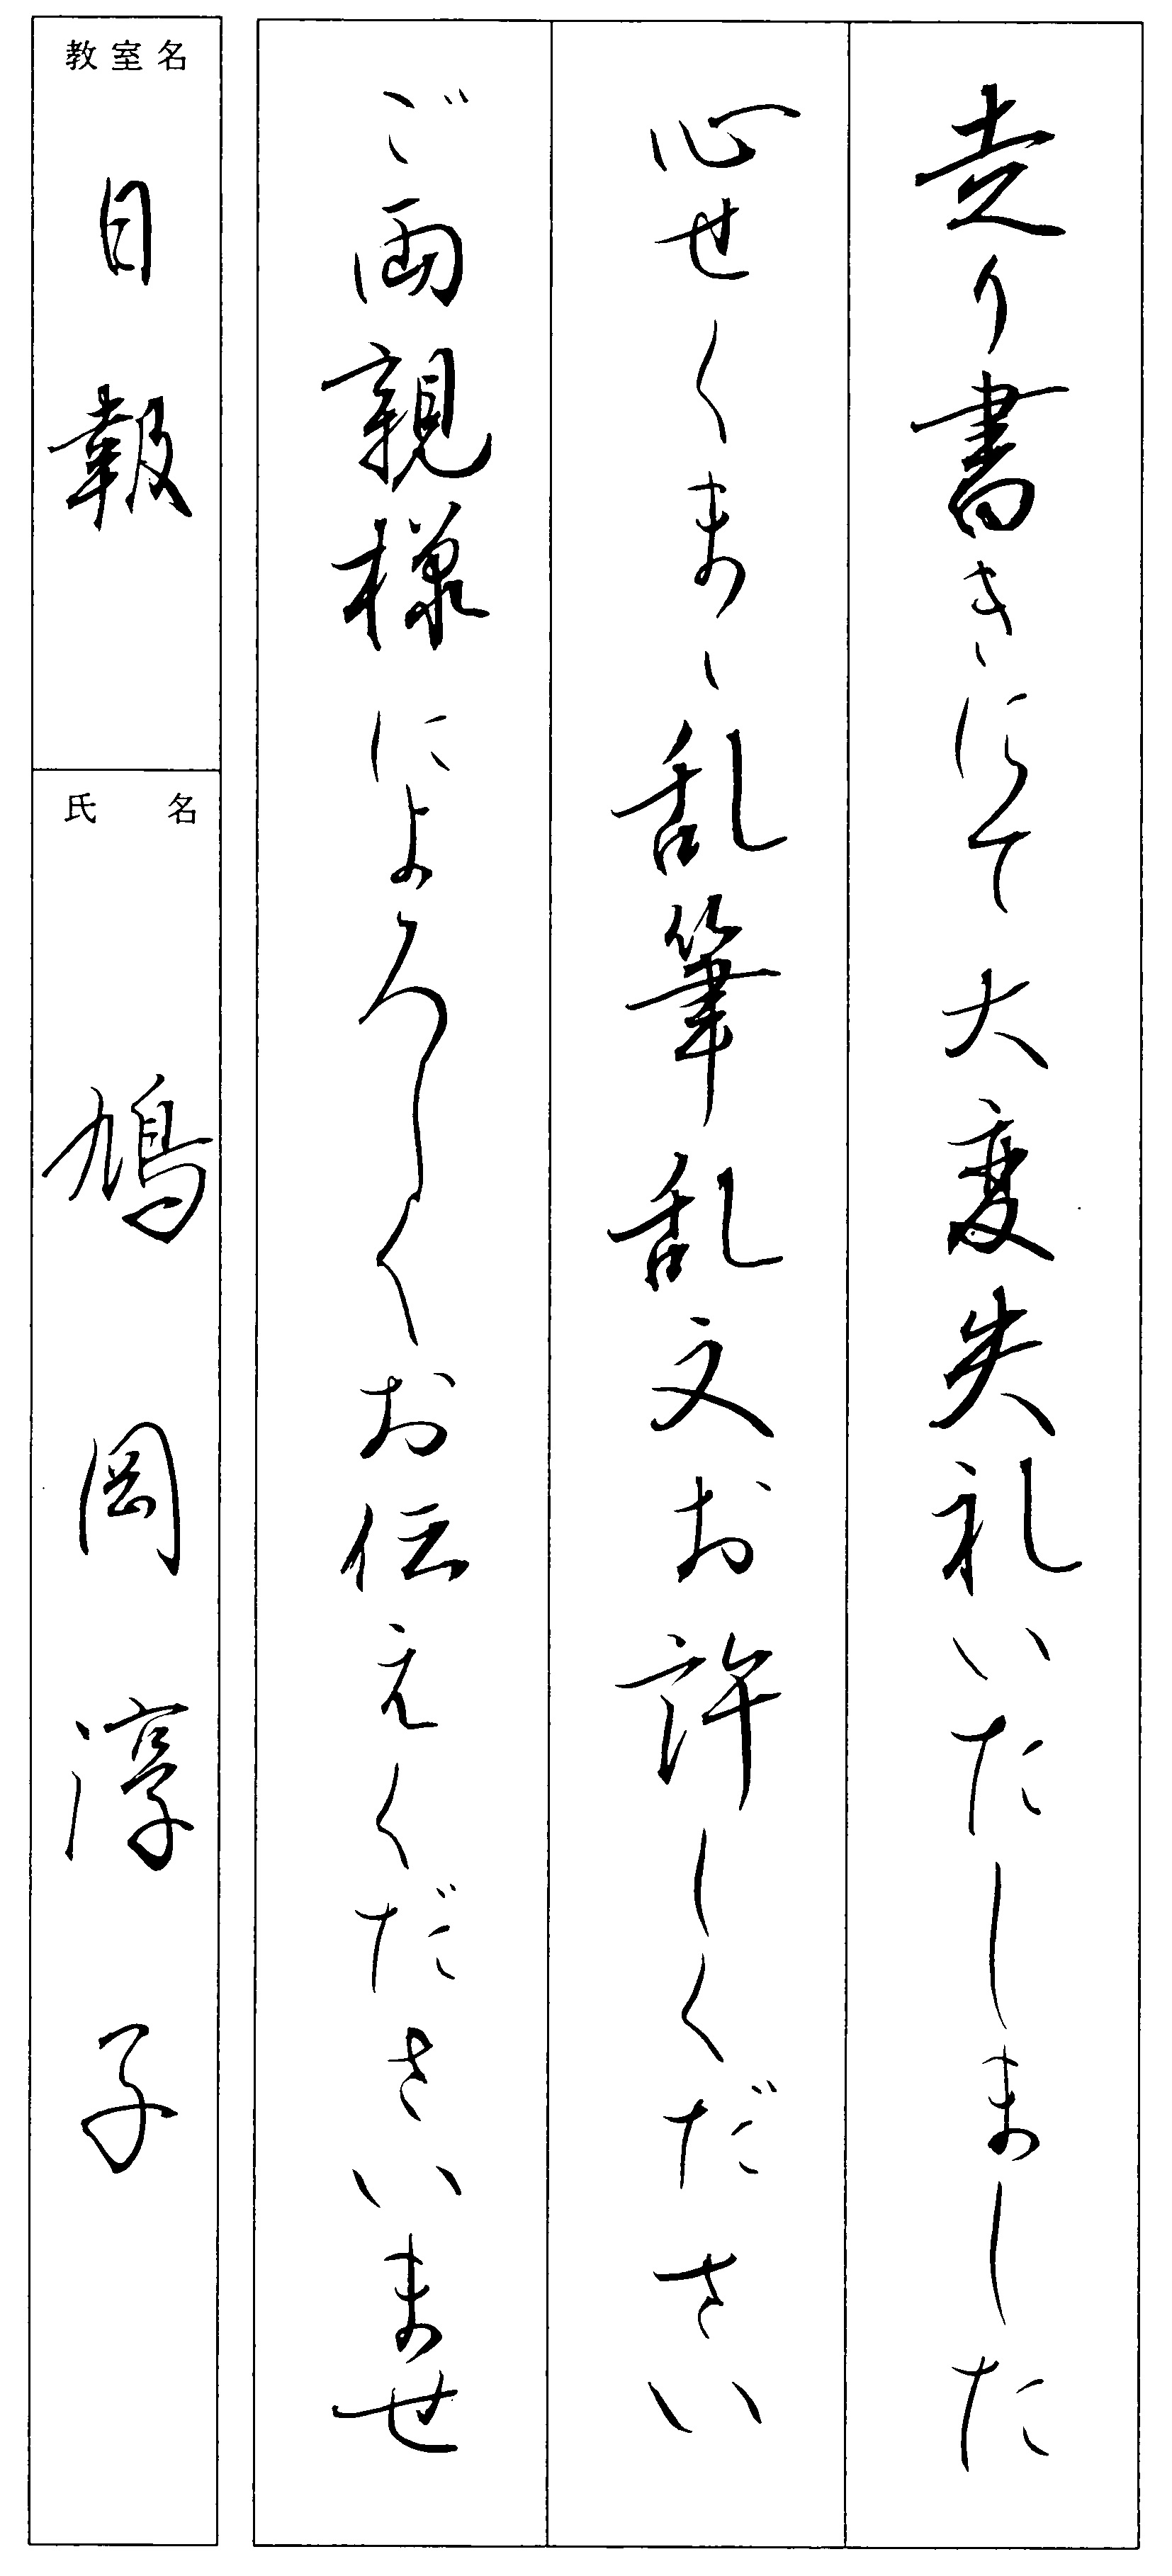 走り書きにて大変失礼いたしました
心せくまゝ乱筆乱文お許しください
ご両親様によろしくお伝えくださいませ
教室名
日報
氏名
鳩岡淳子